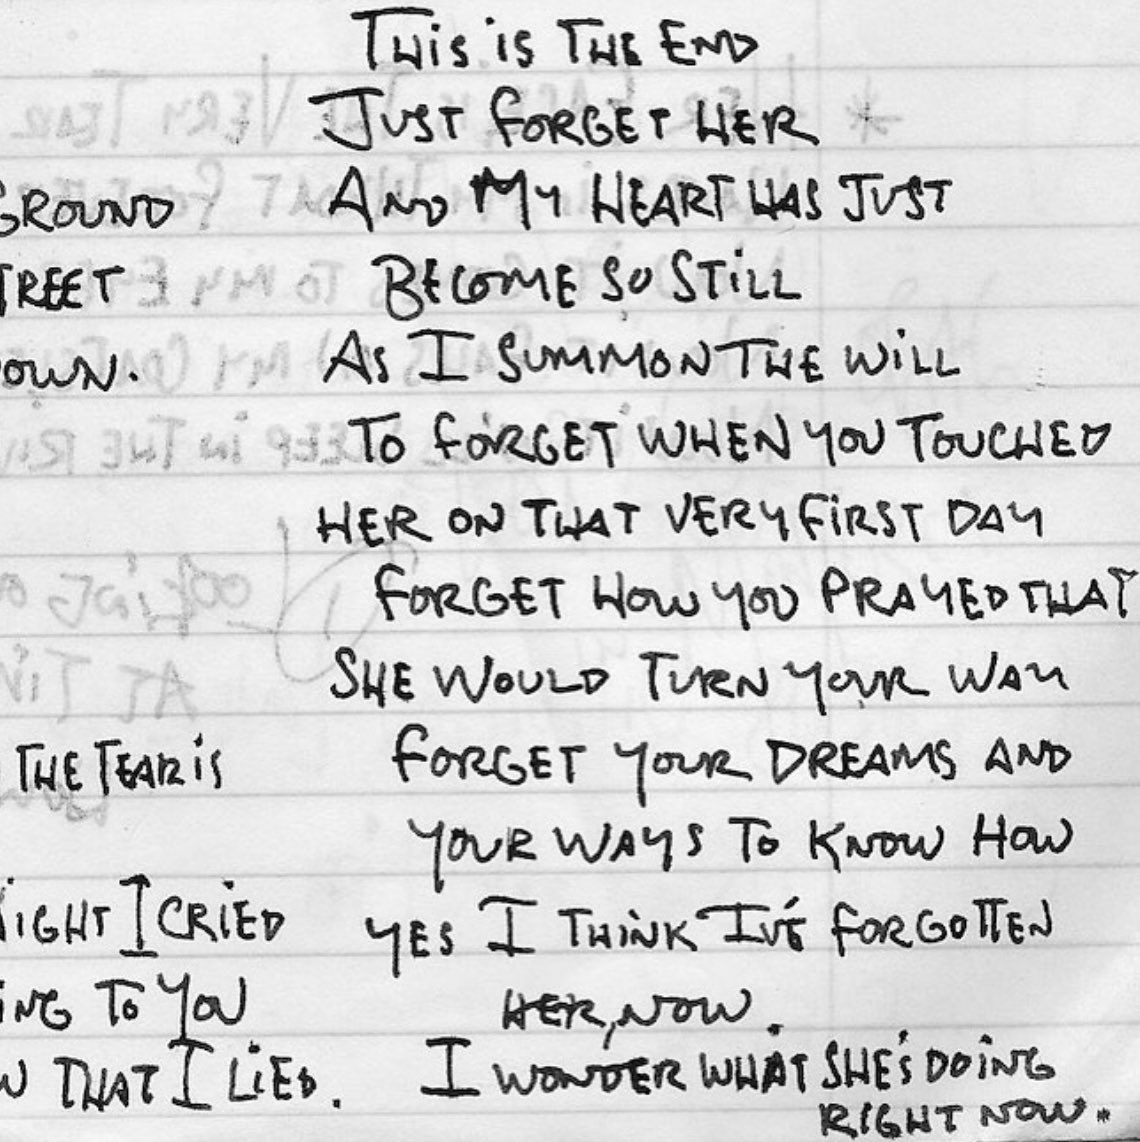 THIS IS THE END
JUST FORGET HER
AND MY HEART HAS JUST
BECOME SO STILL
AS I SUMMON THE WILL
TO FORGET WHEN YOU TOUCHED
HER ON THAT VERY FIRST DAY
FORGET HOW YOU PRAYED THAT
SHE WOULD TURN YOUR WAY
FORGET YOUR DREAMS AND
YOUR WAYS TO KNOW HOW
YES I THINK I'VE FORGOTTEN
HER, NOW.
I WONDER WHAT SHE'S DOING
RIGHT NOW.*
GROUND
TREET
OWN.
THE TEAR IS
IGHT I CRIED
ING TO YOU
W THAT I LIED.